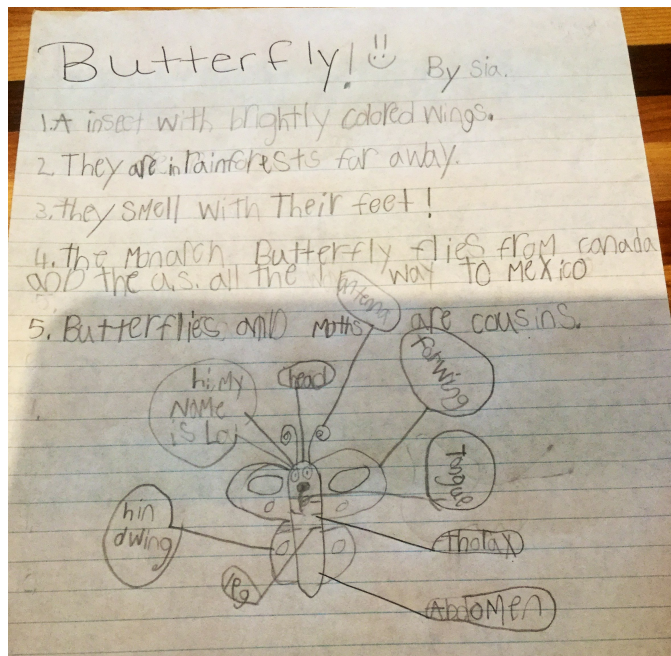 Butterfly! By Sia.
1. A insect with brightly colored wings.
2. They are in rainforests far away.
3. they smell with Their feet!
4. The Monarch Butterfly flies from canada
and the u.s. all the way to Mexico
5. Butterflies and moths are cousins.
antenna
head
forwing
hi, My
NaMe
is Loi
Tongue
hin
dwing
Tholax
leg
AbdoMen